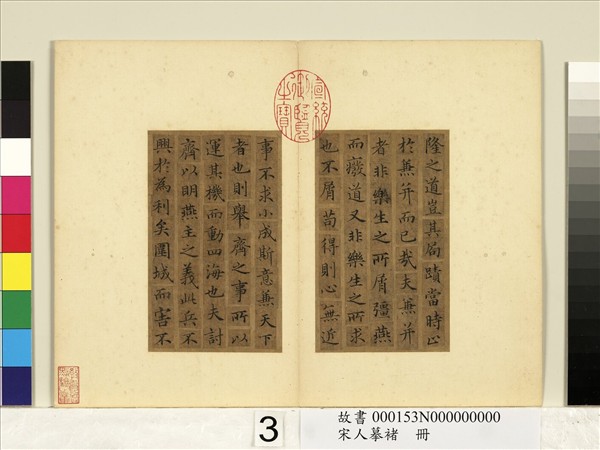 隆之道豈其局蹟當時止
於兼并而已哉夫兼并
者非樂生之所屑彊燕
而廢道又非樂生之所求
也不屑苟得則心無近
事不求小成斯意兼天下
者也則舉齊之事所以
運其機而動四海也夫討
齊以明燕主之義此兵不
興於為利矣圍城而害不
宣統御覽之寶
3
故書 000153N000000000
宋人摹褚 冊